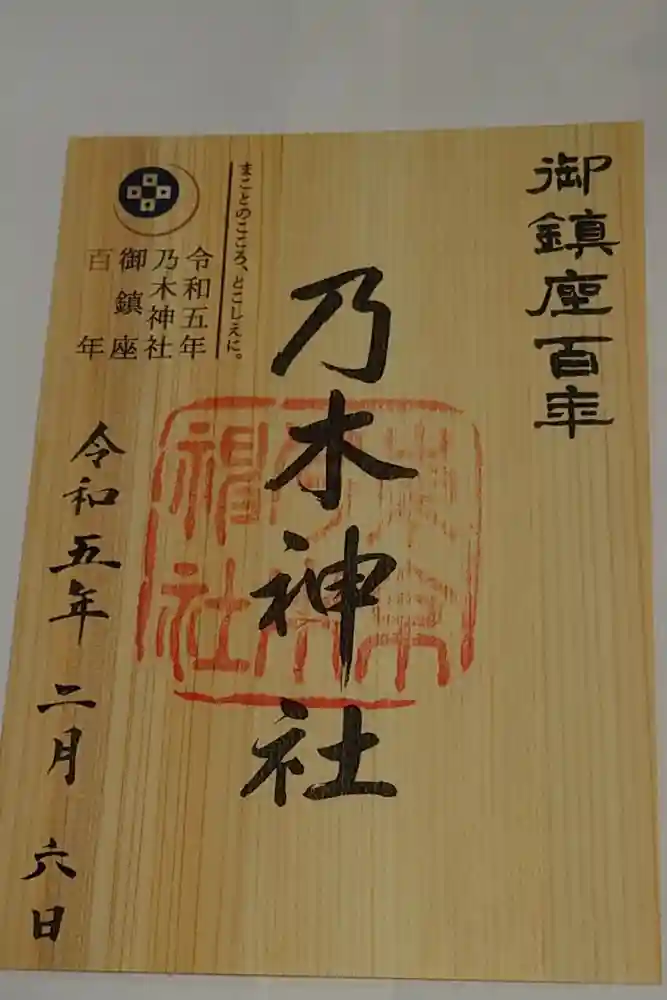 御鎮座百年
乃木神社
東京
乃木
神社
まことのこころ、とこしえに。
令和五年
乃木神社
御鎮座
百年
令和五年 二月 六日